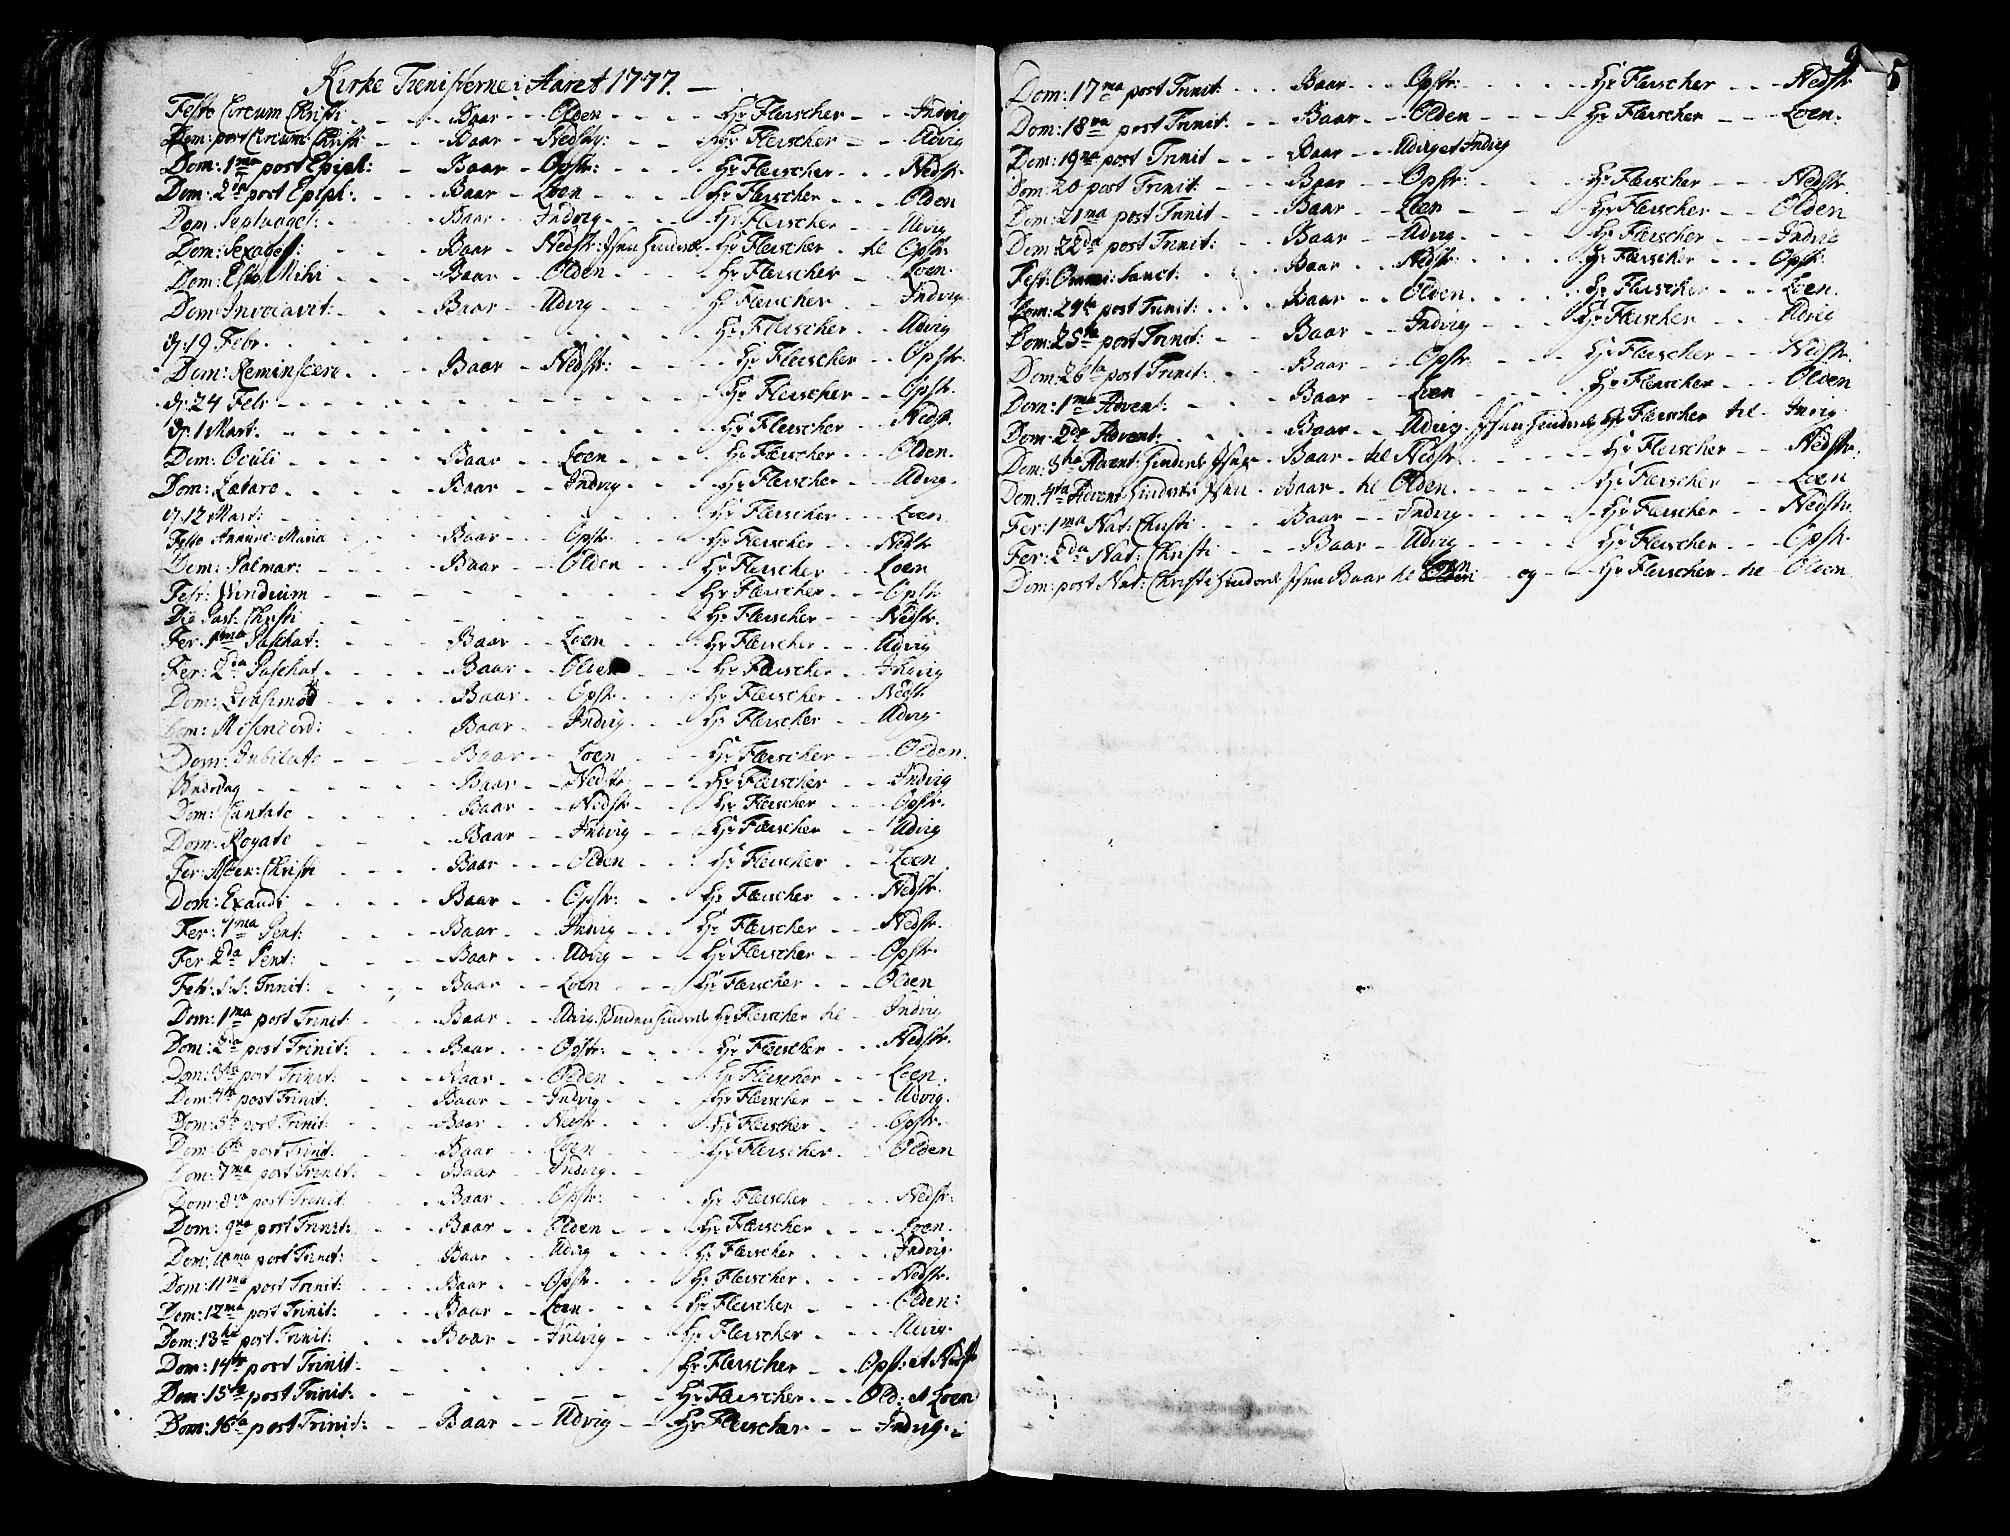 Kirke Tienisterne i Aaret 1777. —
Festo Circum Christi - - - - Baar - - Olden - - - - Hr Fleischer - - Indvig
Dom: post Circumc: Christi - - - Baar - - Nedstr: - - - Hr Fleischer - - Udvig
Dom: 1ma post Epiph: - Baar - - Opstr: - - - - Hr Fleischer - - - Nedstr.
Dom: 2da post Epiph: - - - Baar - - Loen - - - - Hr Fleischer - - - Olden
Dom: Septuages: - - - - Baar - - Indvig - - - - Hr Fleischer - - - Udvig
Dom: Sexages: - - - - Baar - - Nedstr: Jisen hindrede Hr Fleischer - til Opstr:
Dom: Esto Mihi - - - - Baar - - Olden - - - - Hr Fleischer - - - Loen.
Dom: Invocavit. - - - - Baar - - Udvig - - - - Hr Fleischer - - - Indvig.
d: 19 Febr. - - - - - - - - Hr Fleischer - - Udvig
Dom: Reminscere - - - - Baar - - Nedstr: - - - - Hr Fleischer - - Opstr.
d: 24 Febr - - - - - - - - Hr Fleischer - - Opstr.
d: 1 Mart. - - - - - - - - Hr Fleischer - - Nedstr.
Dom: Oculi - - - - - Baar - - Loen - - - - Hr Fleischer - - Olden.
Dom: Lætare - - - - - Baar - - Indvig - - - Hr Fleischer - - Udvig.
d: 12 Mart: - - - - - - - - Hr Fleischer - - - Loen
Festo Annunc: Maria - - - - Baar - - Opstr: - - - Hr Fleischer - - Nedstr
Dom: Palmar: - - - - Baar - - Olden - - - Hr Fleischer - - Loen
Festo Viridium - - - - - - - - Hr Fleischer - - - Opstr.
Die Pass: Christi - - - - - - - - Hr Fleischer - - Nedstr.
Fer: 1ma Paschat: - - - - Baar - - Loen - - - Hr Fleischer - - Udvig
Fer: 2da Paschat. - - - - Baar - - Olden - - - Hr Fleischer - - Indvig
Dom: Qvasimod - - - - Baar - - Opstr. - - - Hr Fleischer - - Nedstr
Dom: Misericord: - - - Baar - - Indvig - - - Hr Fleischer - - Udvig.
Dom: Jubilate - - - - Baar - - Loen - - - Hr Fleischer - - Olden.
Bededag - - - - - - Baar - - Nedstr: - - - Hr Fleischer - - Indvig
Dom: Cantate - - - - - Baar - - Nedstr - - - Hr Fleischer - - Opstr.
Dom: Rogate - - - - Baar - - Indvig - - - Hr Fleischer - - Udvig
Fer: Ascen: Christi - - - - Baar - - Olden - - - Hr Fleischer - - Loen
Dom: Exaudi - - - - - Baar - - Opstr: - - - Hr Fleischer - - Nedstr.
Fer: 1ma Pent: - - - - Baar - - Indvig - - - Hr Fleischer - - Nedstr.
Fer: 2da Pent: - - - - Baar - - Udvig - - - Hr Fleischer - - Opstr.
Fest: S: S: Trinit: - - - - Baar - - Loen - - - Hr Fleischer - - - Olden
Dom: 1ma post Trinit. - - - Baar - - Udvig. hindrede Hr Fleischer til - Indvig
Dom: 2da post Trinit: - - - Baar - - Opstr: - - - - Hr Fleischer - - - Nedstr.
Dom: 3tia post Trinit: - - - Baar - - Olden - - - - Hr Fleischer - - - Loen.
Dom: 4ta post Trinit. - - - Baar - - Indvig - - - - Hr Fleischer - - - Udvig.
Dom: 5ta post Trinit: - - - Baar - - Nedstr - - - - Hr Fleischer - - - Opstr.
Dom: 6ta post Trinit: - - - Baar - - Loen - - - - Hr Fleischer - - - Olden
Dom: 7ma post Trinit: - - - Baar - - Indvig - - -
Dom: 8va post Trinit - - - Baar - - Opstr: - - - Hr Fleischer - - - Nedstr:
Dom: 9na post Trinit: - - - Baar - - Olden - - - - Hr Fleischer - - - Loen.
Dom: 10ma post Trinit: - - - Baar - - Udvig - - - - Hr Fleischer - - - - Indvig.
Dom: 11ma post Trinit: - - - Baar - - Opstr. - - - - Hr Fleischer - - - - Nedstr.
Dom: 12ma post Trinit: - - - Baar - - Loen - - - - Hr Fleischer - - - Olden:
Dom: 13tia post Trinit: - - - Baar - - Indvig - - - Hr Fleischer - - - Udvig.
Dom: 14ta post Trinit - - - - - - - - Hr Fleischer - - Opst: et Nedst
Dom: 15ta post Trinit: - - - - - - - Hr Fleischer - - - Old: et Loen
Dom: 16ta post Trinit: - - - Baar - - Udvig - - Hr Fleischer - - Indvig.
5
Dom: 17ma post Trinit - - - Baar - - - Opstr: - - - - - Hr Fleischer - - - Nedstr
Dom: 18va post Trinit: - - - Baar - - - Olden - - - - - Hr Fleischer - - - Loen.
Dom: 19na post Trinit - - - Baar - - - Udvig et Indvig
Dom: 20 post Trinit: - - - Baar - - - Opstr: - - - - Hr Fleischer - - - Nedstr.
Dom: 21ma post Trinit - - - Baar - - - Loen - - - - Hr Fleischer - - - Olden
Dom: 22da post Trinit: - - - Baar - - - Udvig - - - - Hr Fleischer - - - Indvig
Fest: Omni: Sanct: - - - - Baar - - - Nedstr - - - - Hr Fleischer - - - Opstr.
Dom: 24ta post Trinit: - - - - Baar - - - Olden - - - - Hr Fleischer - - - Loen.
Dom: 25ta post Trinit: - - - Baar - - - Indvig - - - - Hr Fleischer - - - Udvig
Dom: 26ta post Trinit: - - - Baar - - - Opstr - - - - Hr Fleischer - - - Nedstr.
Dom: 1ma Advent: - - - - Baar - - - Loen - - - - Hr Fleischer - - - Olden
Dom: 2da Advent: - - - - Baar - - Udvig. Jisen hindrede Hr Fleischer til - Invig
Dom: 3tia Advent: hindrede Jisen - Baar - til Nedstr. - - - - - Hr Fleischer - - Nedstr.
Dom. 4ta Advent hindrede Jisen - Baar - til Olden. - - - - Hr Fleischer - - - Loen
Fer: 1ma Nat: Christi - - - - Baar - - - Indvig - - - - - Hr Fleischer - - - Nedstr.
Fer: 2da Nat: Christi - - - - Baar - - Udvig - - - - - Hr Fleischer - - - Opstr.
Dom: post Nat: Christi hindrede Jisen Baar til Loen - og - - Hr Fleischer - til - Olden